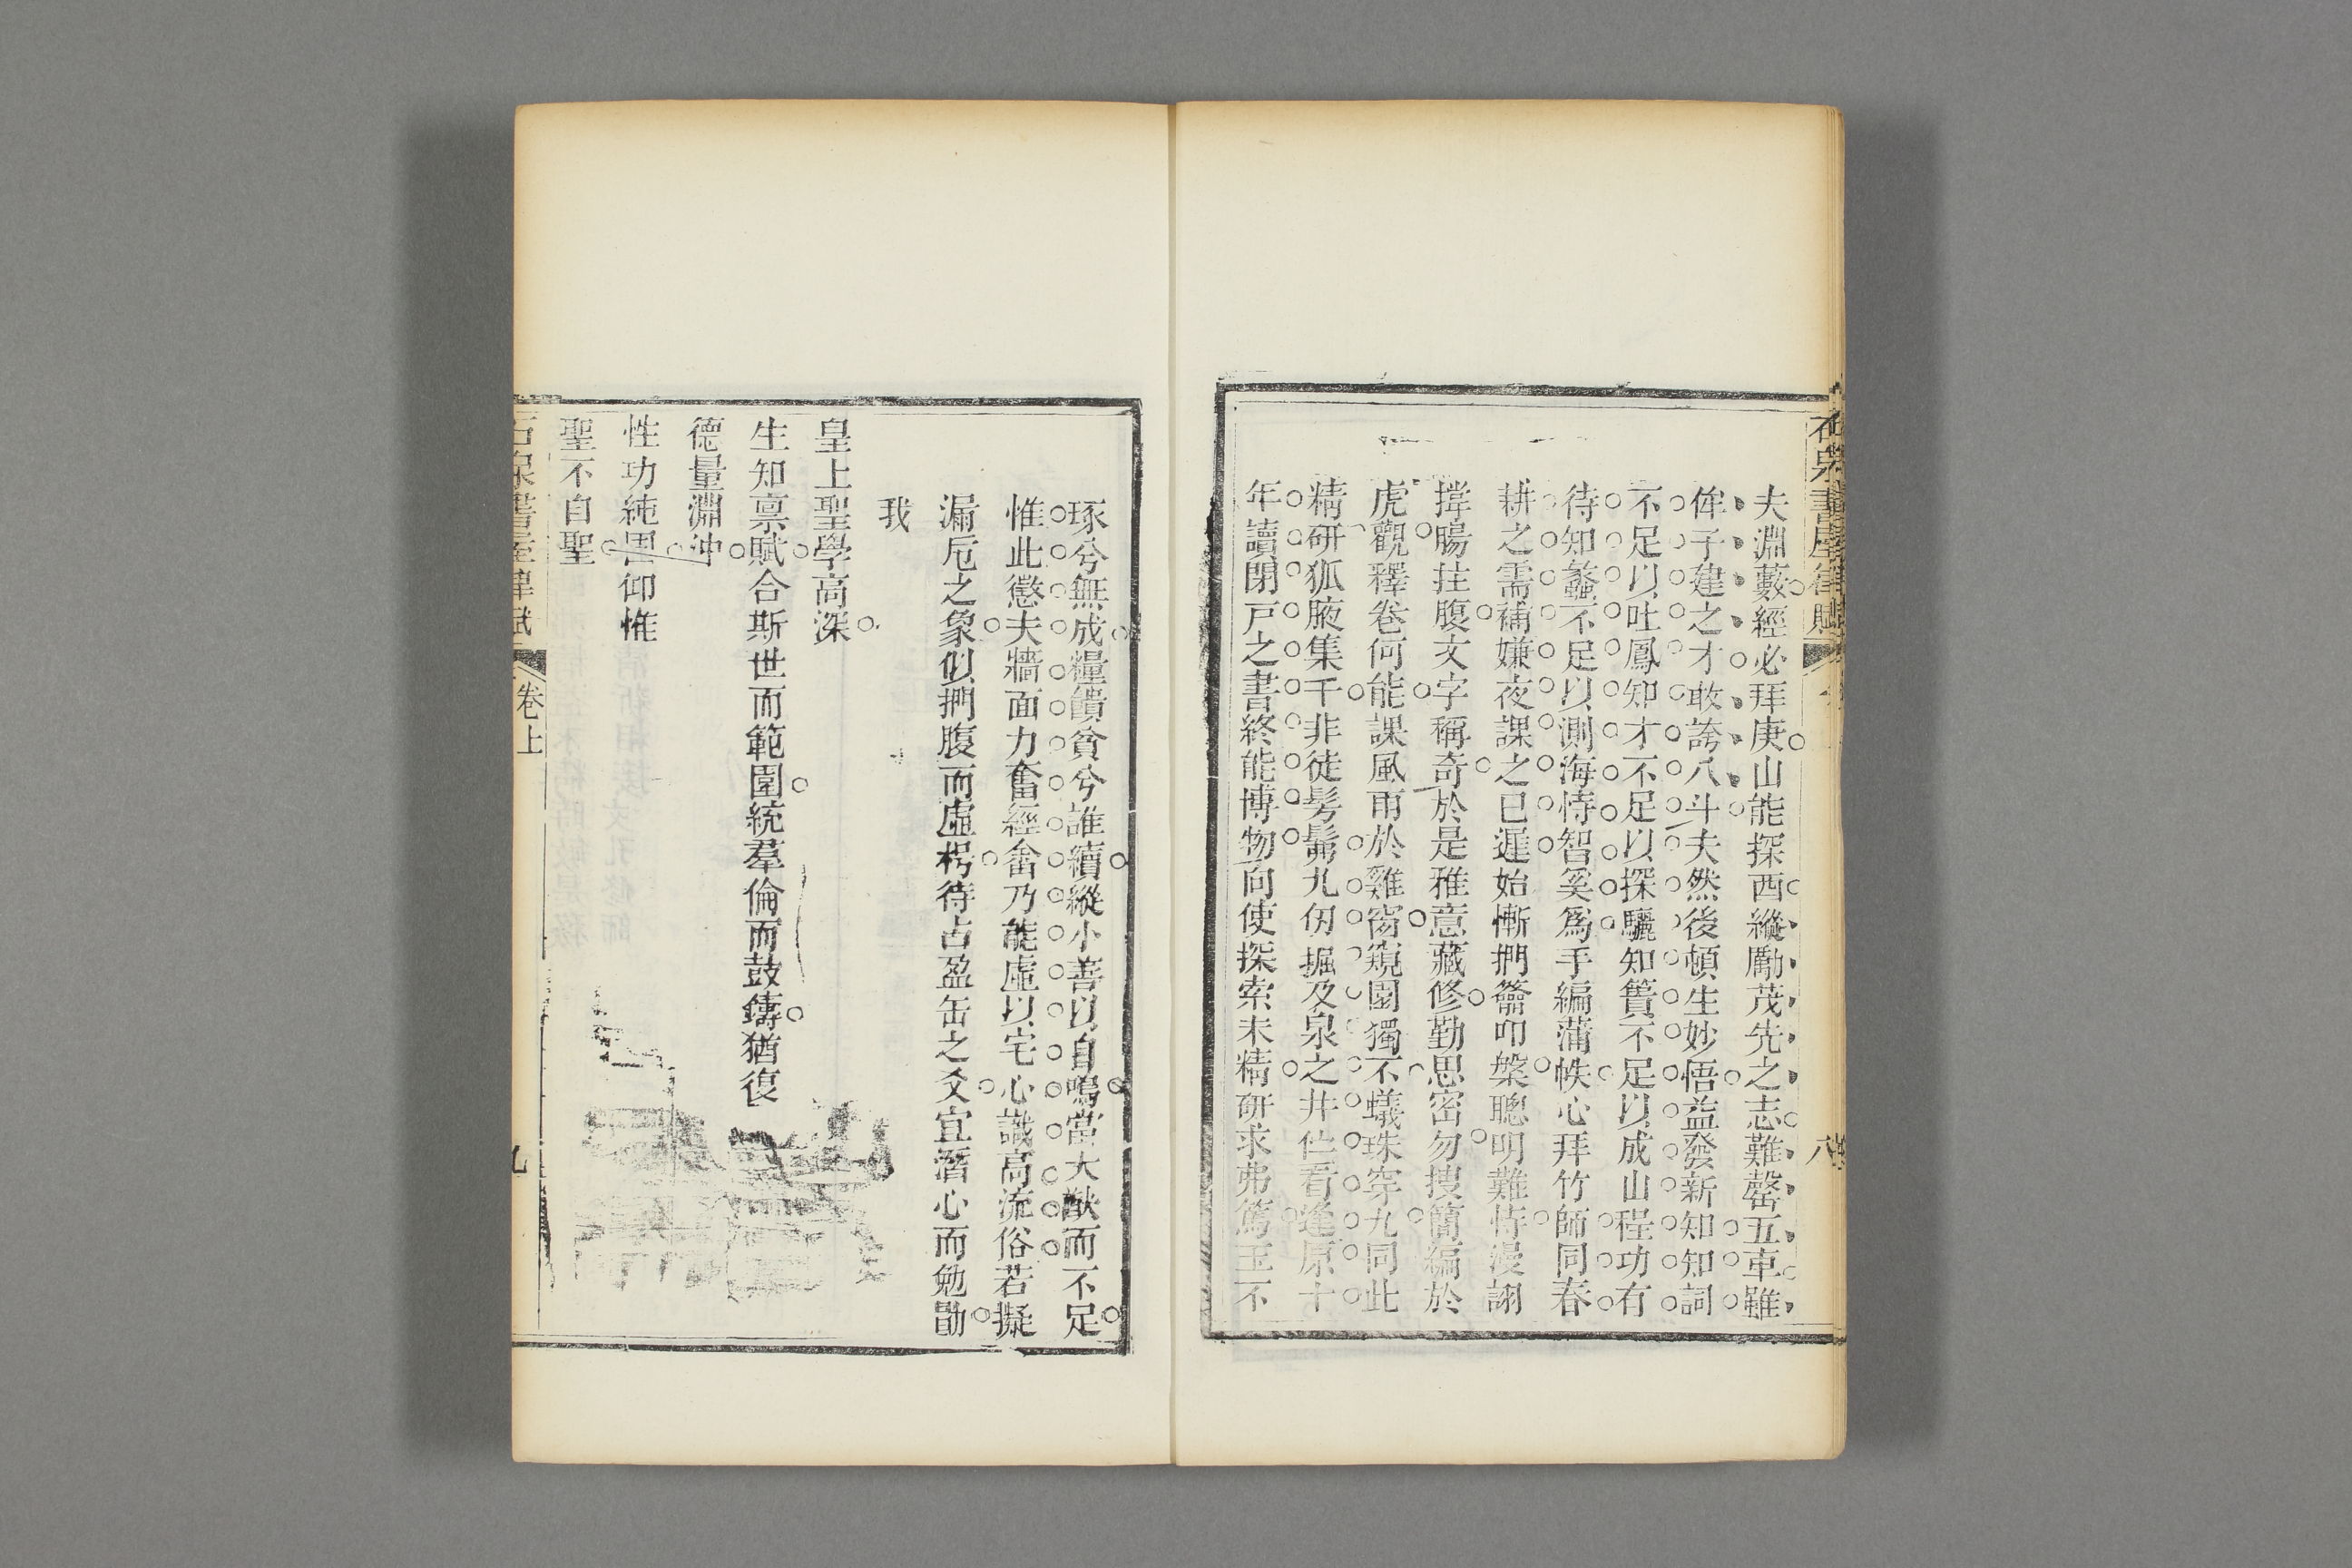 石泉書屋律賦
八
夫淵藪經必拜庚山能探酉縱勵茂先之志難罄五車雖
侔子建之才敢誇八斗夫然後頓生妙悟益發新知知詞
不足以吐鳳知才不足以探驪知簣不足以成山程功有
待知蠡不足以測海恃智奚爲手編蒲帙心拜竹師同春
耕之需補嫌夜課之已遲始慚捫籥叩槃聰明難恃漫詡
撐腸拄腹文字稱奇於是雅意藏修勤思密勿搜簡編於
虎觀釋卷何能課風雨於雞窗窺園獨不蟻珠穿九同此
精研狐腋集千非徒髣髴九仞掘及泉之井佇看逢原十
年讀閉戸之書終能博物向使探索未精研求弗篤玉不
琢兮無成糧饋貧兮誰續縱小善以自鳴當大猷而不足
惟此懲夫牆面力奮經畬乃能虛以宅心識高流俗若擬
漏卮之象似捫腹而虛枵待占盈缶之爻宜潛心而勉勖
我
皇上聖學高深
生知禀賦合斯世而範圍統羣倫而鼓鑄猶復
德量淵沖
性功純固仰惟
聖不自聖
石泉書屋律賦
卷上
九